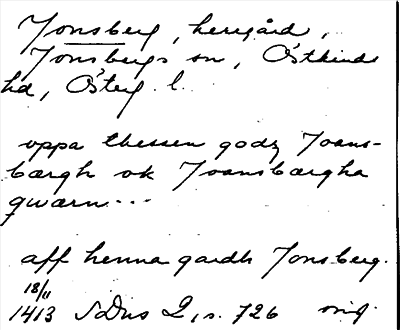 Jonsberg, herregård,
Jonsbergs sn, Östkinds
hd, Österg. l.
oppa thessen godz Joans-
bærgh ok Joansbærgha
qwærn...
aff henna gardh Jonsberg.
18/11
1413 SDns 2, s. 726 orig.